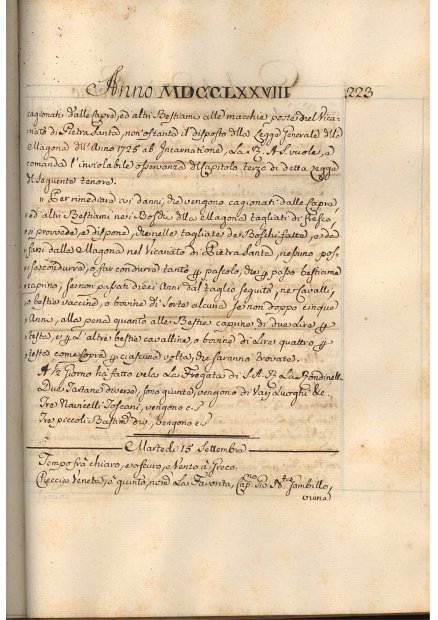 Anno MDCCLXXVIII
223
cagionati dalle Capre, ed altri Bestiami alle macchie poste nel Vica=
riato di Pietra Santa, non ostante il disposto della Legge Generale della
Magona dell'Anno 1725 ab Incarnatione, La R. A. S. vuole, e
comanda l'inviolabile osservanza del Capitolo terzo di detta Legge
del seguente tenore.
" Per rimediare ai danni, che vengono cagionati dalle Capre,
" ed altri Bestiami nei Boschi della Magona tagliati di fresco
" si provvede, e dispone, che nelle tagliate dei Boschi fatte, e da
" farsi dalla Magona nel Vicariato di Pietra Santa, nessuno pos=
" sa condurre, o far condurre tanto p pascolo, che p passo bestiame
" caprino, se non passati dieci Anni dal taglio seguito, ne Cavalli,
" o bestie vaccine, o bovine di Sorte alcuna se non doppo cinque
" Anni, alla pena quanto alle Bestie caprine di due Lire p
" testa, e p L'altre bestie cavalline, o bovine di Lire quattro p
" testa come sopra p ciascuna volta, che saranno trovate.
A ½ Giorno ha fatto vela La Fregata di S. A. R. La
Due Tartane diverse, sono giunte, vengono di Varj Luoghi &c.
Tre Navicelli Toscani, vengono c.s.
Tre piccoli Bastim.ti div., vengono c.s.
Martedi 15 Settembre
Tempo frà chiaro, e oscuro, e Vento à Greco.
Checcia Veneta, è giunta, nom.a La Favorita, Cap.no Gio. Sambillo,
viene